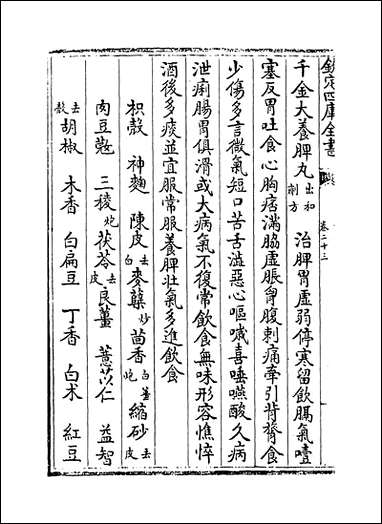 欽定四庫全書
卷二十三
千金大養脾丸 出和劑方 治脾胃虛弱停寒留飲膈氣噎
塞反胃吐食心胸痞滿脇虛脹胷腹刺痛牽引背膂食
少傷多言微氣短口苦舌澁惡心嘔噦喜唾嚥酸久病
泄痢腸胃俱滑或大病氣不復常飲食無味形容憔悴
酒後多痰並宜服常服養脾壯氣多進飲食
枳殼 神麴 陳皮去白 麥蘖炒 茴香 白薑炮 縮砂去皮
肉豆蔲 三稜炮 茯苓去皮 良薑 薏苡仁 益智
去殼 胡椒 木香 白扁豆 丁香 白术 紅豆